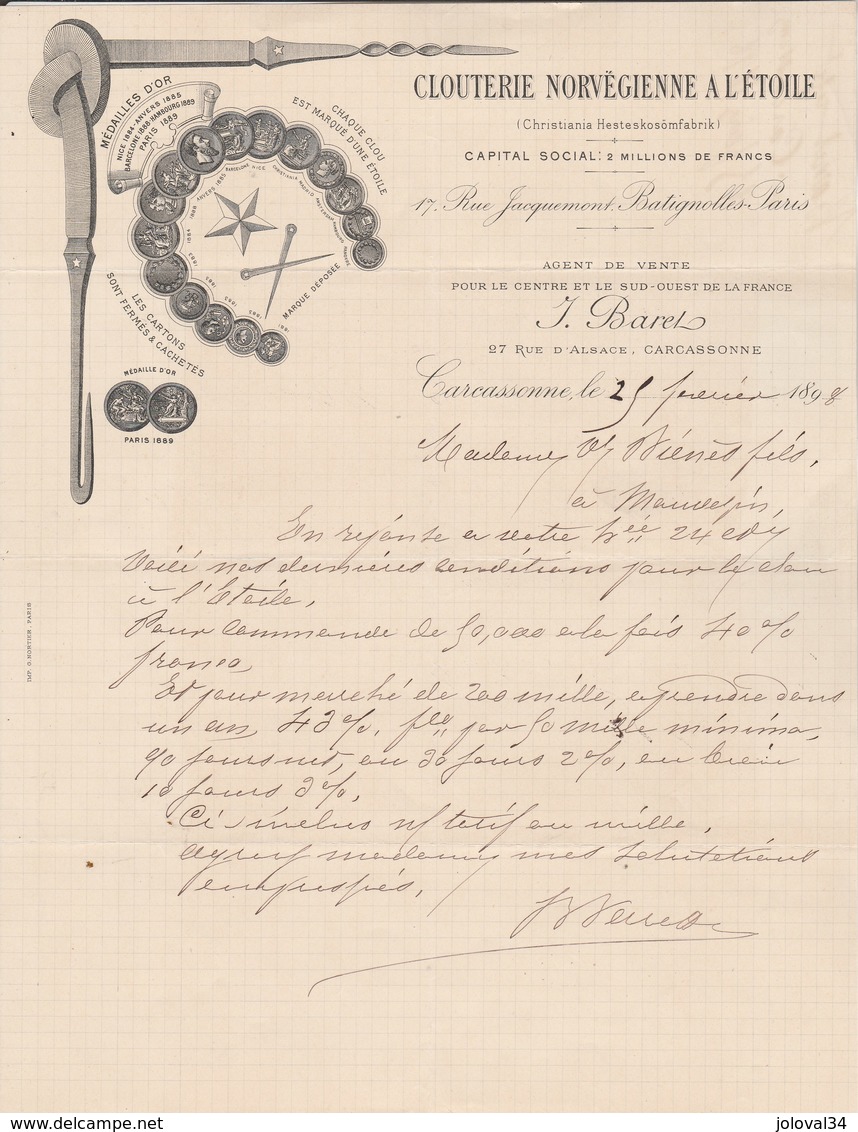 CLOUTERIE NORVÉGIENNE A L'ÉTOILE
(Christiania Hesteskosömfabrik)
CAPITAL SOCIAL: 2 MILLIONS DE FRANCS
17, Rue Jacquemont, Batignolles-Paris
AGENT DE VENTE
POUR LE CENTRE ET LE SUD-OUEST DE LA FRANCE
J. Baret
27 RUE D'ALSACE, CARCASSONNE
MÉDAILLES D'OR
NICE 1884-ANVERS 1885
BARCELONE 1888-HAMBOURG 1889
PARIS 1889
CHAQUE CLOU
EST MARQUÉ D'UNE ÉTOILE
MARQUE DÉPOSÉE
LES CARTONS
SONT FERMÉS & CACHETÉS
MÉDAILLE D'OR
PARIS 1889
Carcassonne, le 25 février 1898
Madame Vve fils,
à
En réponse a votre hrée 24 ct
Voici nos dernières conditions pour le clou
à l'Etoile,
Pour commande de 50,000 a la fois 40%
franco
Et pour marché de 200 mille, a prendre dans
un an, 43%, fco par 50 mille minima,
90 jours net, ou 30 jours 2%, ou bien
10 jours 3%,
Ci inclus tarif au mille,
Agréez madame mes salutations
empressées,
IMP. G. NORTIER. PARIS
joloval34